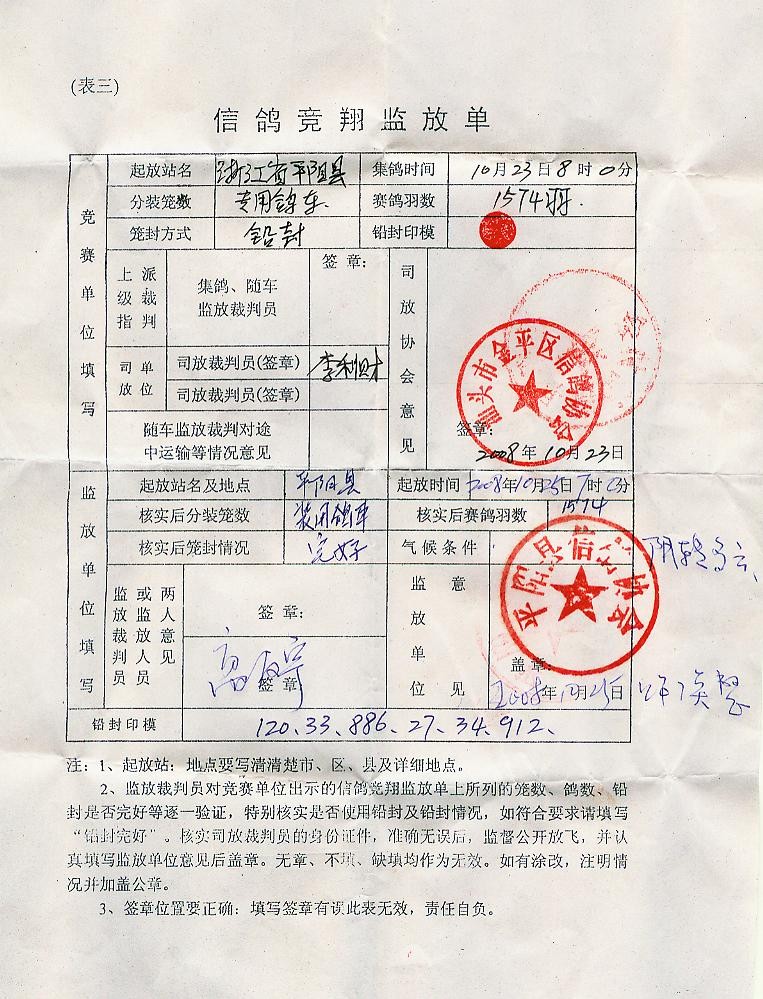 (表三)
信鸽竞翔监放单
竞赛单位填写
起放站名 浙江省平阳县 集鸽时间 10月23日8时0分
分装笼数 专用鸽车. 赛鸽羽数 1574羽.
笼封方式 铅封 铅封印模
上级指派裁判 集鸽、随车监放裁判员 签章:
司放单位 司放裁判员(签章) 李利财
司放裁判员(签章)
随车监放裁判对途中运输等情况意见
司放协会意见
汕头市金平区信鸽协会
签章:
2008年10月23日
监放单位填写
起放站名及地点 平阳县 起放时间 2008年10月25日7时0分
核实后分装笼数 专用鸽车 核实后赛鸽羽数 1574
核实后笼封情况 完好 气候条件 阴转多云
监放裁判员或监放人员两人意见 签章:
签章
监放单位意见
平阳县信鸽协会
盖章:
2008年10月25日
铅封印模 120、33、886、27、34、912、
注:1、起放站:地点要写清清楚市、区、县及详细地点。
2、监放裁判员对竞赛单位出示的信鸽竞翔监放单上所列的笼数、鸽数、铅
封是否完好等逐一验证,特别核实是否使用铅封及铅封情况,如符合要求请填写
“铅封完好”。核实司放裁判员的身份证件,准确无误后,监督公开放飞,并认
真填写监放单位意见后盖章。无章、不填、缺填均作为无效。如有涂改,注明情
况并加盖公章。
3、签章位置要正确:填写签章有误此表无效,责任自负。